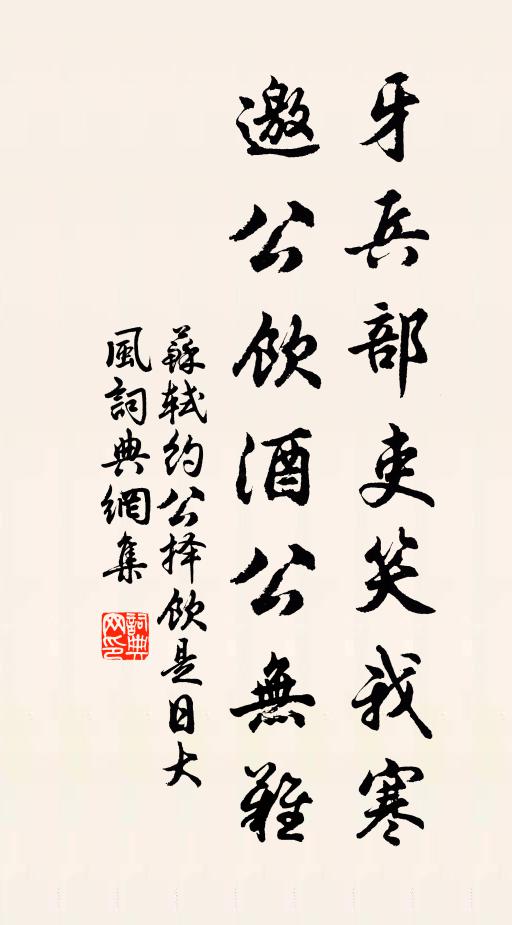 牙兵部吏笑我寒
邀公飲酒公無難
蘇軾約公择飲是日大
風詞典網集
詞典网印